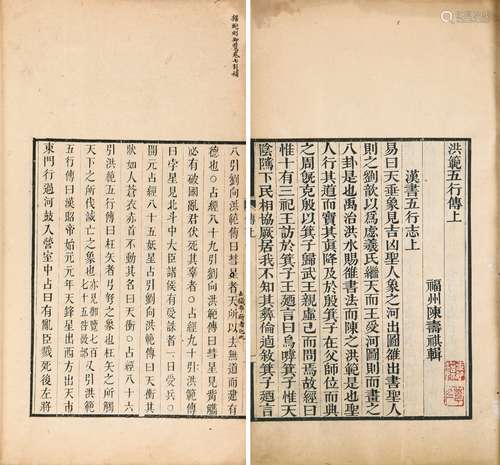 洪範五行傳上
福州陳壽祺輯
漢書五行志上
易曰天垂象見吉凶聖人象之河出圖雒出書聖人
則之劉歆以為虙羲氏繼天而王受河圖則而畫之
八卦是也禹治洪水賜雒書法而陳之洪範是也聖
人行其道而寶其真降及于殷箕子在父師位而典
之周旣克殷以箕子歸武王親虛己而問焉故經曰
惟十有三祀王訪於箕子王廼言曰烏嘑箕子惟天
陰隲下民相協厥居我不知其彝倫逌敘箕子廼言
八引劉向洪範傳曰彗星者天所以去無道而建有
德也○占經八十九引劉向洪範傳曰彗星見觜觿
必有破國亂君伏死其辜者○占經九十引洪範傳
曰孛星見北斗中大臣諸侯有受誅者一曰受兵○
開元占經八十五妖星占引洪範傳曰天衝其
狀如人蒼衣赤首不動其名曰天衝○占經八十六
引洪範五行傳曰枉矢者弓弩之象也枉矢之所觸
天下之所伐滅亡之象也亦見御覽七百七十五咎徵部又引洪範
五行傳曰漢昭帝始元元年天鋒星出西方出天市
東門行過河鼓入營室中占曰有亂臣戮死後左將